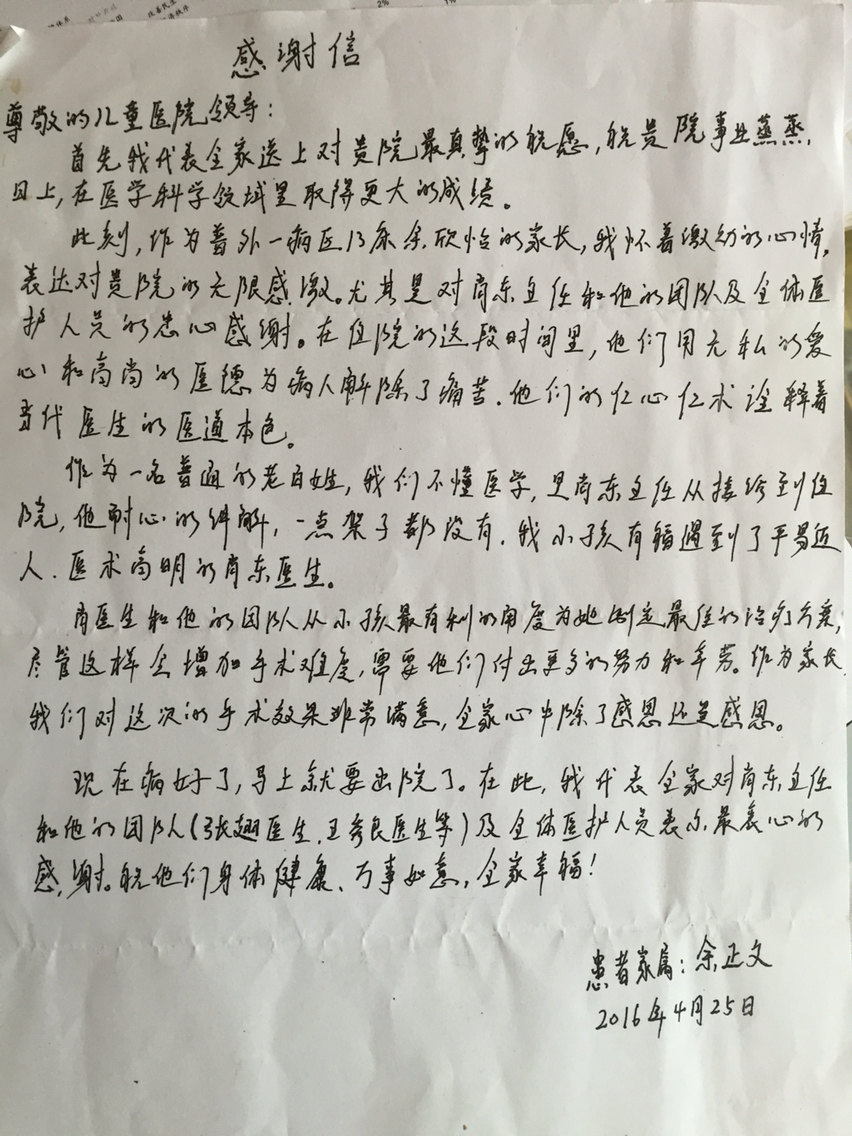 感谢信
尊敬的儿童医院领导：
首先我代表全家送上对贵院最真挚的祝愿，祝贵院事业蒸蒸
日上，在医学科学领域里取得更大的成绩。
此刻，作为普外一病区13床余欣怡的家长，我怀着激动的心情，
表达对贵院的无限感激。尤其是对肖东主任和他的团队及全体医
护人员的忠心感谢。在住院的这段时间里，他们用无私的爱
心和高尚的医德为病人解除了痛苦．他们的仁心仁术诠释着
当代医生的医道本色。
作为一名普通的老百姓，我们不懂医学，是肖东主任从接给到住
院，他耐心的讲解，一点架子都没有．我小孩有福遇到了平易近
人．医术高明的肖东医生。
肖医生和他的团队从小孩最有利的角度为她制定最佳的治疗方案，
尽管这样会增加手术难度，需要他们付出更多的努力和辛劳。作为家长
我们对这次的手术效果非常满意，全家心中除了感恩还是感恩。
现在病好了，马上就要出院了。在此，我代表全家对肖东主任
和他的团队（张翅医生．王孝良医生等）及全体医护人员表示最衷心的
感谢。祝他们身体健康、万事如意，全家幸福！
患者家属：余正文
2016年4月25日